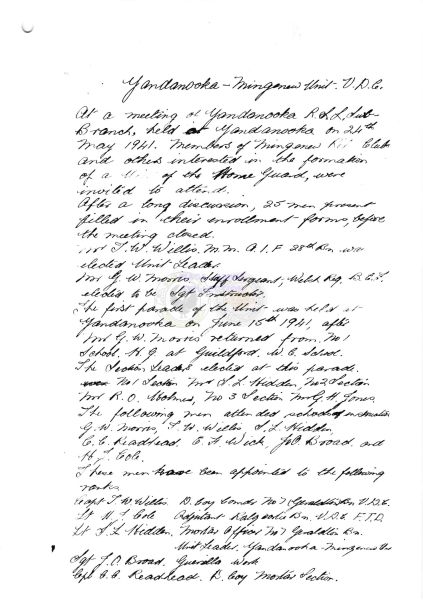 Yandanooka - Mingenew Unit. V.D.C.
At a meeting of Yandanooka R.S.L. Sub-
Branch, held at Yandanooka on 24th
May 1941. Members of Mingenew Club
and others interested in the formation
of a of the Home Guard, were
invited to attend.
After a long discussion, 25 men present
filled in their enrollment forms, before
the meeting closed.
Mr T. W. Willis, M.M. A.I.F 28th Bn was
elected Unit Leader.
Mr G. W. Morris, Staff Sergeant, Welsh Reg B.E.F.
elected to be Sgt Instructor.
The first parade of the Unit was held at
Yandanooka on June 15th 1941, after
Mr G. W. Morris returned from No 1
School. H.Q at Guildford.
The Section Leaders elected at this parade
No 1 Section Mr S. L. Hidden, No 2 Section
Mr R. O. No 3 Section Mr G. H. Jones.
The following men attended schools
G. W. Morris, T. W. Willis, S. L. Hidden,
C. C. Readhead. E. F. Wick, J. O. Broad. and
H. J. Cole.
These men have been appointed to the following
ranks
Capt T. W. Willis D. Coy No 7 Geraldton Bn V.D.C.
Lt H. J. Cole Adjutant Kalgoorlie Bn. V.D.C. F.T.D.
Lt S. L. Hidden, Mortar Officer No 7 Geraldton Bn.
Unit Leader, Yandanooka Mingenew
Sgt J. O. Broad. Guerilla Work
Cpl C. C. Readhead. B. Coy Mortar Section.